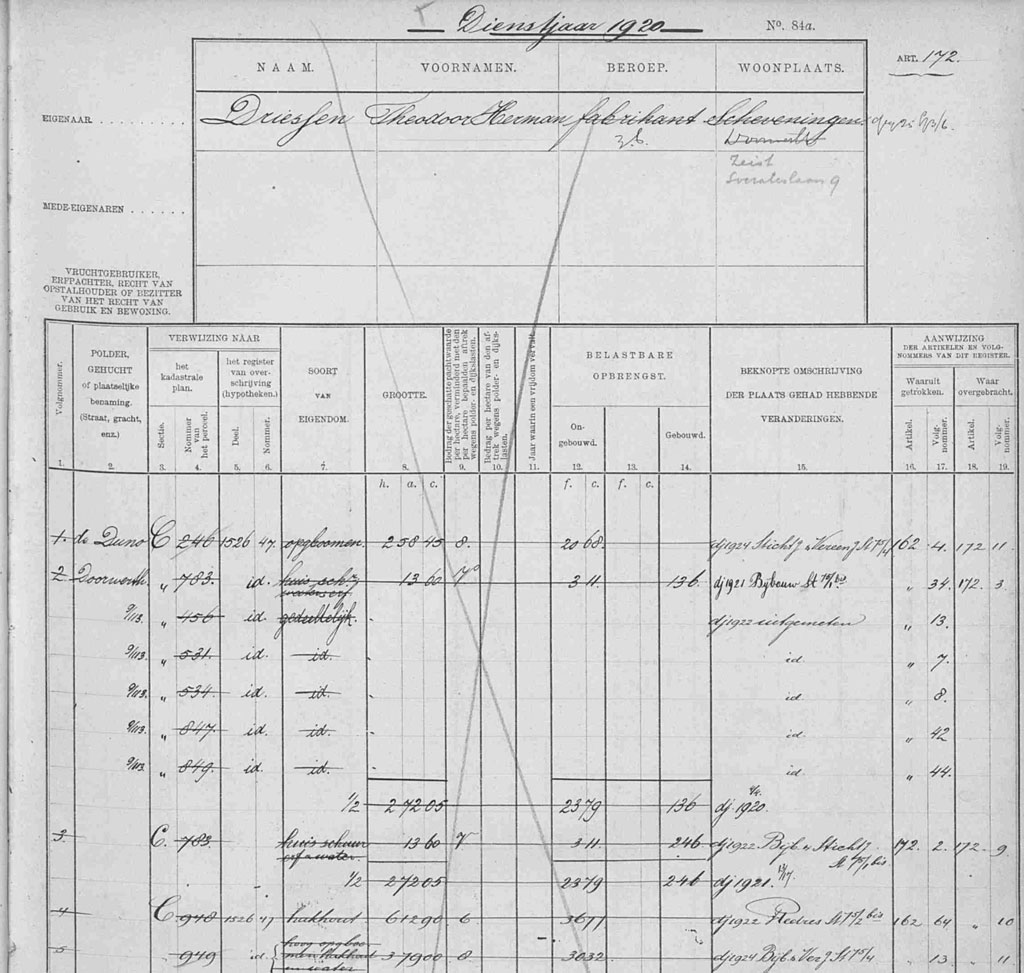 Dienstjaar 1920
No. 84a.
ART. 172.
NAAM. VOORNAMEN. BEROEP. WOONPLAATS.
EIGENAAR
Driessen Theodoor Herman fabrikant Scheveningen
z.b.
Zeist
9
MEDE-EIGENAREN
VRUCHTGEBRUIKER,
ERFPACHTER, RECHT VAN
OPSTALHOUDER OF BEZITTER
VAN HET RECHT VAN
GEBRUIK EN BEWONING.
Volgnommer.
POLDER,
GEHUCHT
of plaatselijke
benaming.
(Straat, gracht,
enz.)
VERWIJZING NAAR
het
kadastrale
plan.
Sectie.
Nommer
van
het perceel.
het register
van over-
schrijving
(hypotheken.)
Deel.
Nommer.
SOORT
VAN
EIGENDOM.
GROOTTE.
Bedrag der geschatte pachtwaarde
per hectare, verminderd met den
per hectare bepaalden aftrek
wegens polder- en dijkslasten.
Bedrag per hectare van den af-
trek wegens polder- en dijks-
lasten.
Jaar waarin een vrijdom vervalt.
BELASTBARE
OPBRENGST.
On-
gebouwd.
Gebouwd.
BEKNOPTE OMSCHRIJVING
DER PLAATS GEHAD HEBBENDE
VERANDERINGEN.
AANWIJZING
DER ARTIKELEN EN VOLG-
NOMMERS VAN DIT REGISTER.
Waaruit
getrokken.
Waar
overgebracht.
Artikel. Volg-nommer. Artikel. Volg-nommer.
1. 2. 3. 4. 5. 6. 7. 8. 9. 10. 11. 12. 13. 14. 15. 16. 17. 18. 19.
h. a. c. f. c. f. c.
1. de Duno C 246 1526 47. opg boomen 2 58 45 8. 20 68. dj 1924 162 4. 172 11
2 Doorwerth " 783. id. huis sch. 13 60 7 3 11 136. dj 1921 Bijbouw " 34. 172. 3
water erf
9/113. " 456 id. gedeeltelijk. dj 1922 uitgemeten " 13.
9/113. " 531. id. id. id. " 7.
9/113. " 534 id. id. id. " 8.
9/113. " 847. id. id. id. " 42
9/113. " 849. id. id. id. " 44.
1/2 2 72 05 23 79 136 dj 1920.
3. C. 783. huis schuur 13 60 7 3 11 246. dj 1922 172. 2. 172. 9
erf en water.
1/2 2 72 05 23 79 246 dj 1921.
4 C 948 1526 47 hakhout 6 12 90 6 36 77 dj 1922 Redres 162 64 " 10
5 949 id 3 79 00 8 30 32 dj 1924 " 13. " 11
en water